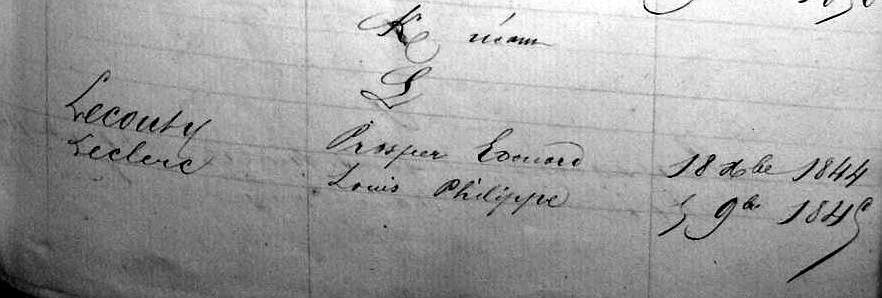 K néant
L
Lecouty Prosper Edouard 18 Xbe 1844
Leclerc Louis Philippe 5 9be 1845